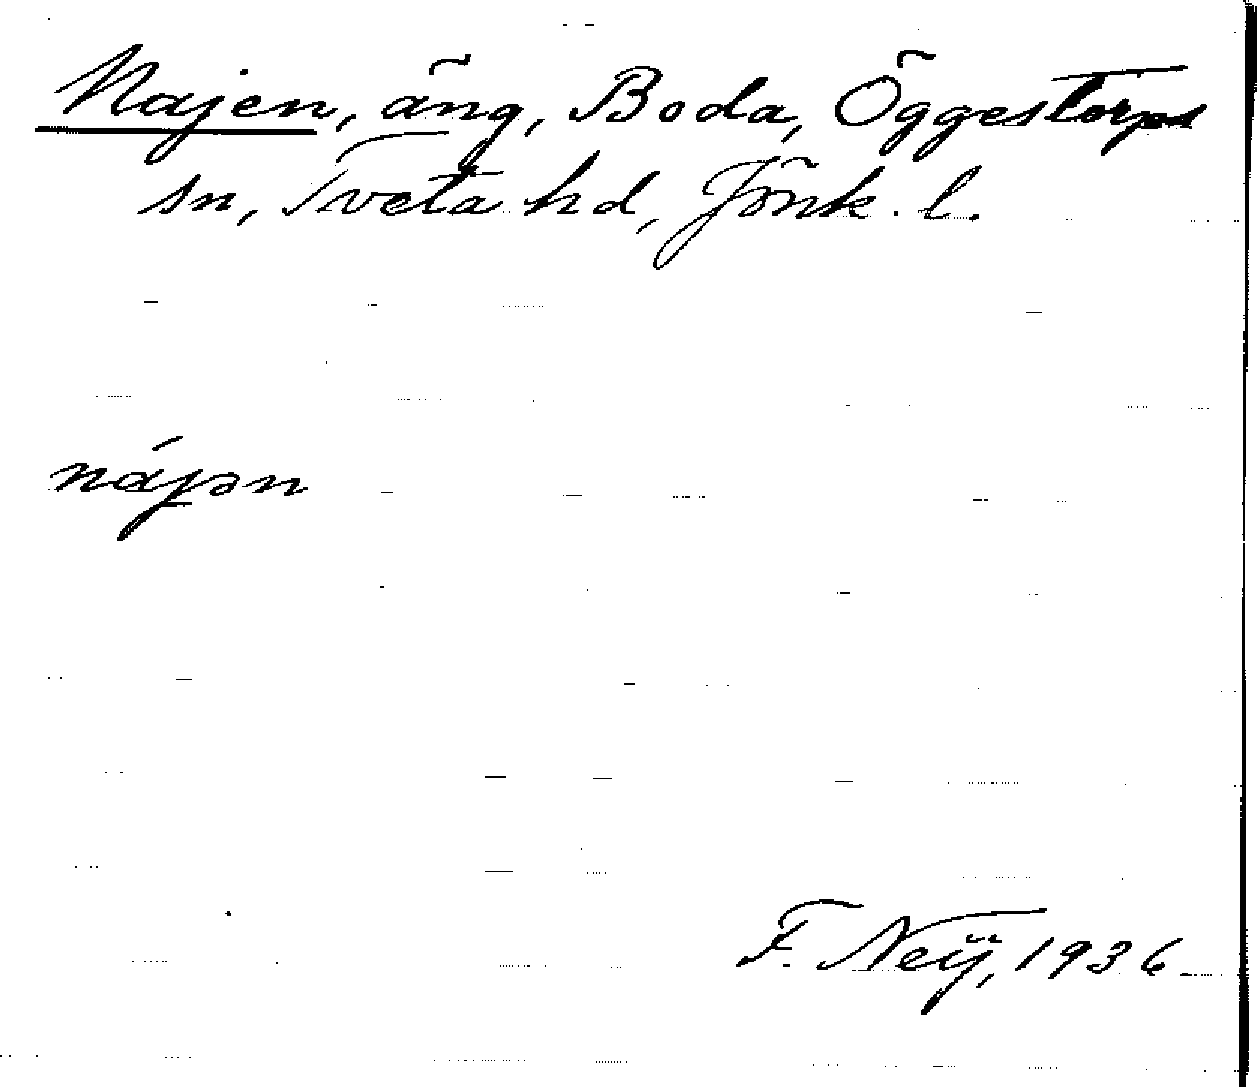 Najen, äng, Boda, Öggestorps
sn, Tveta hd, Jönk. l.
nájən
F. Neÿ, 1936